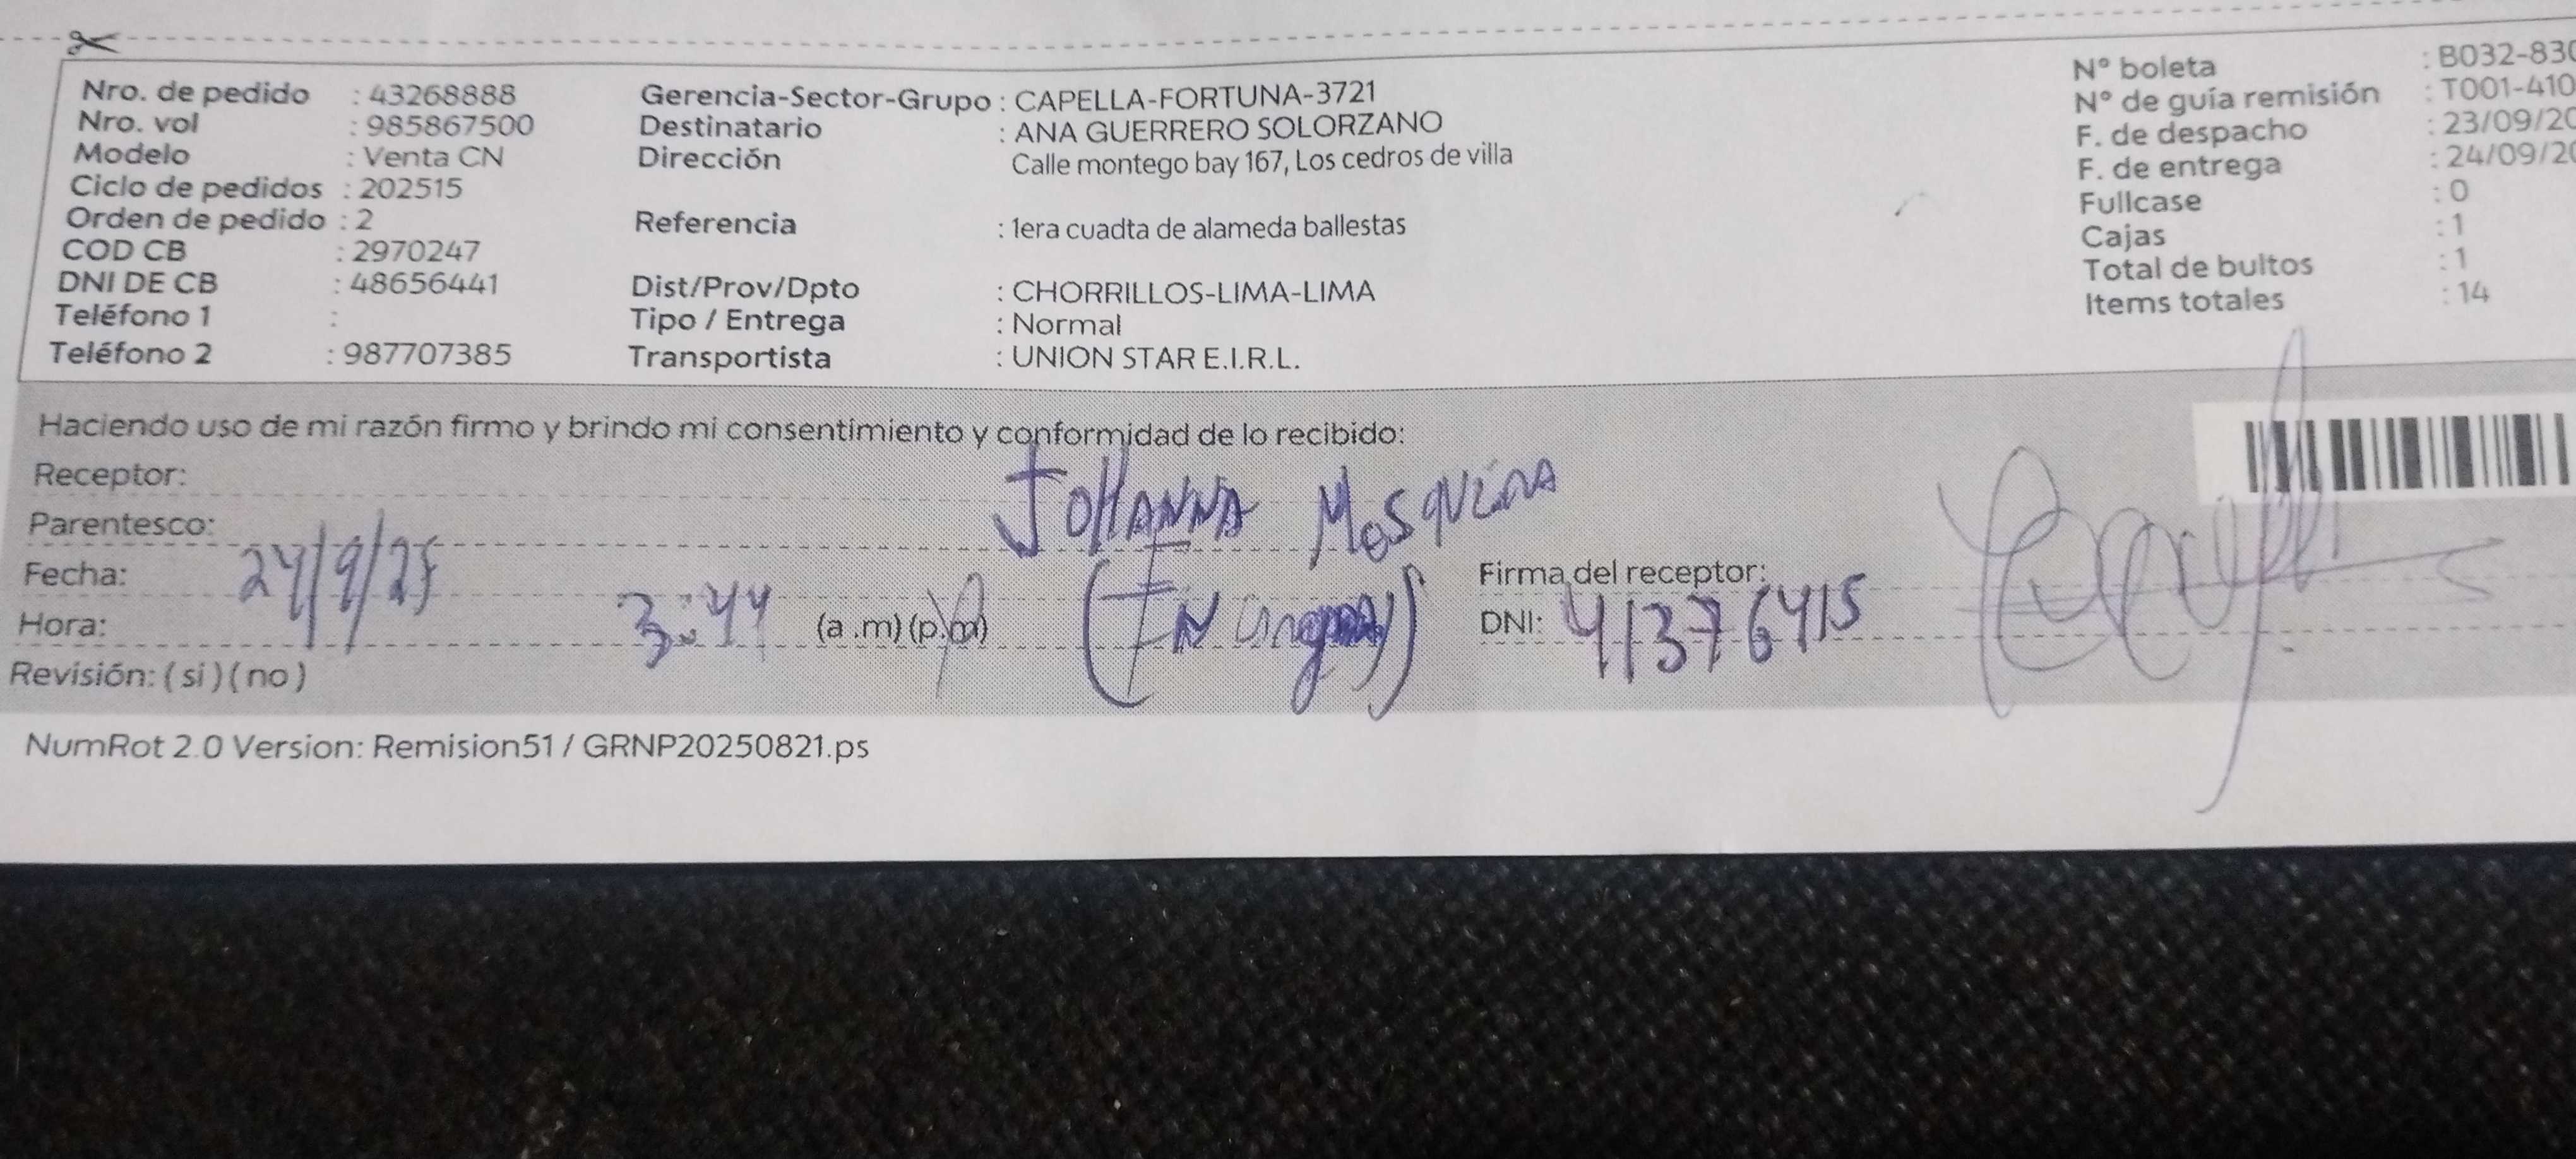 Nro. de pedido : 43268888
Nro. vol : 985867500
Modelo : Venta CN
Ciclo de pedidos : 202515
Orden de pedido : 2
COD CB : 2970247
DNI DE CB : 48656441
Teléfono 1 :
Teléfono 2 : 987707385
Gerencia-Sector-Grupo : CAPELLA-FORTUNA-3721
Destinatario : ANA GUERRERO SOLORZANO
Dirección Calle montego bay 167, Los cedros de villa
Referencia : 1era cuadta de alameda ballestas
Dist/Prov/Dpto : CHORRILLOS-LIMA-LIMA
Tipo / Entrega : Normal
Transportista : UNION STAR E.I.R.L.
N° boleta : B032-830
N° de guía remisión : T001-410
F. de despacho : 23/09/20
F. de entrega : 24/09/20
Fullcase : 0
Cajas : 1
Total de bultos : 1
Items totales : 14
Haciendo uso de mi razón firmo y brindo mi consentimiento y conformidad de lo recibido:
Receptor: JOHANNA
Parentesco:
Fecha: 24/9/25
Hora: 3:44 (a .m) (p.m)
Firma del receptor:
DNI: 41376415
Revisión: ( si ) ( no )
NumRot 2.0 Version: Remision51 / GRNP20250821.ps